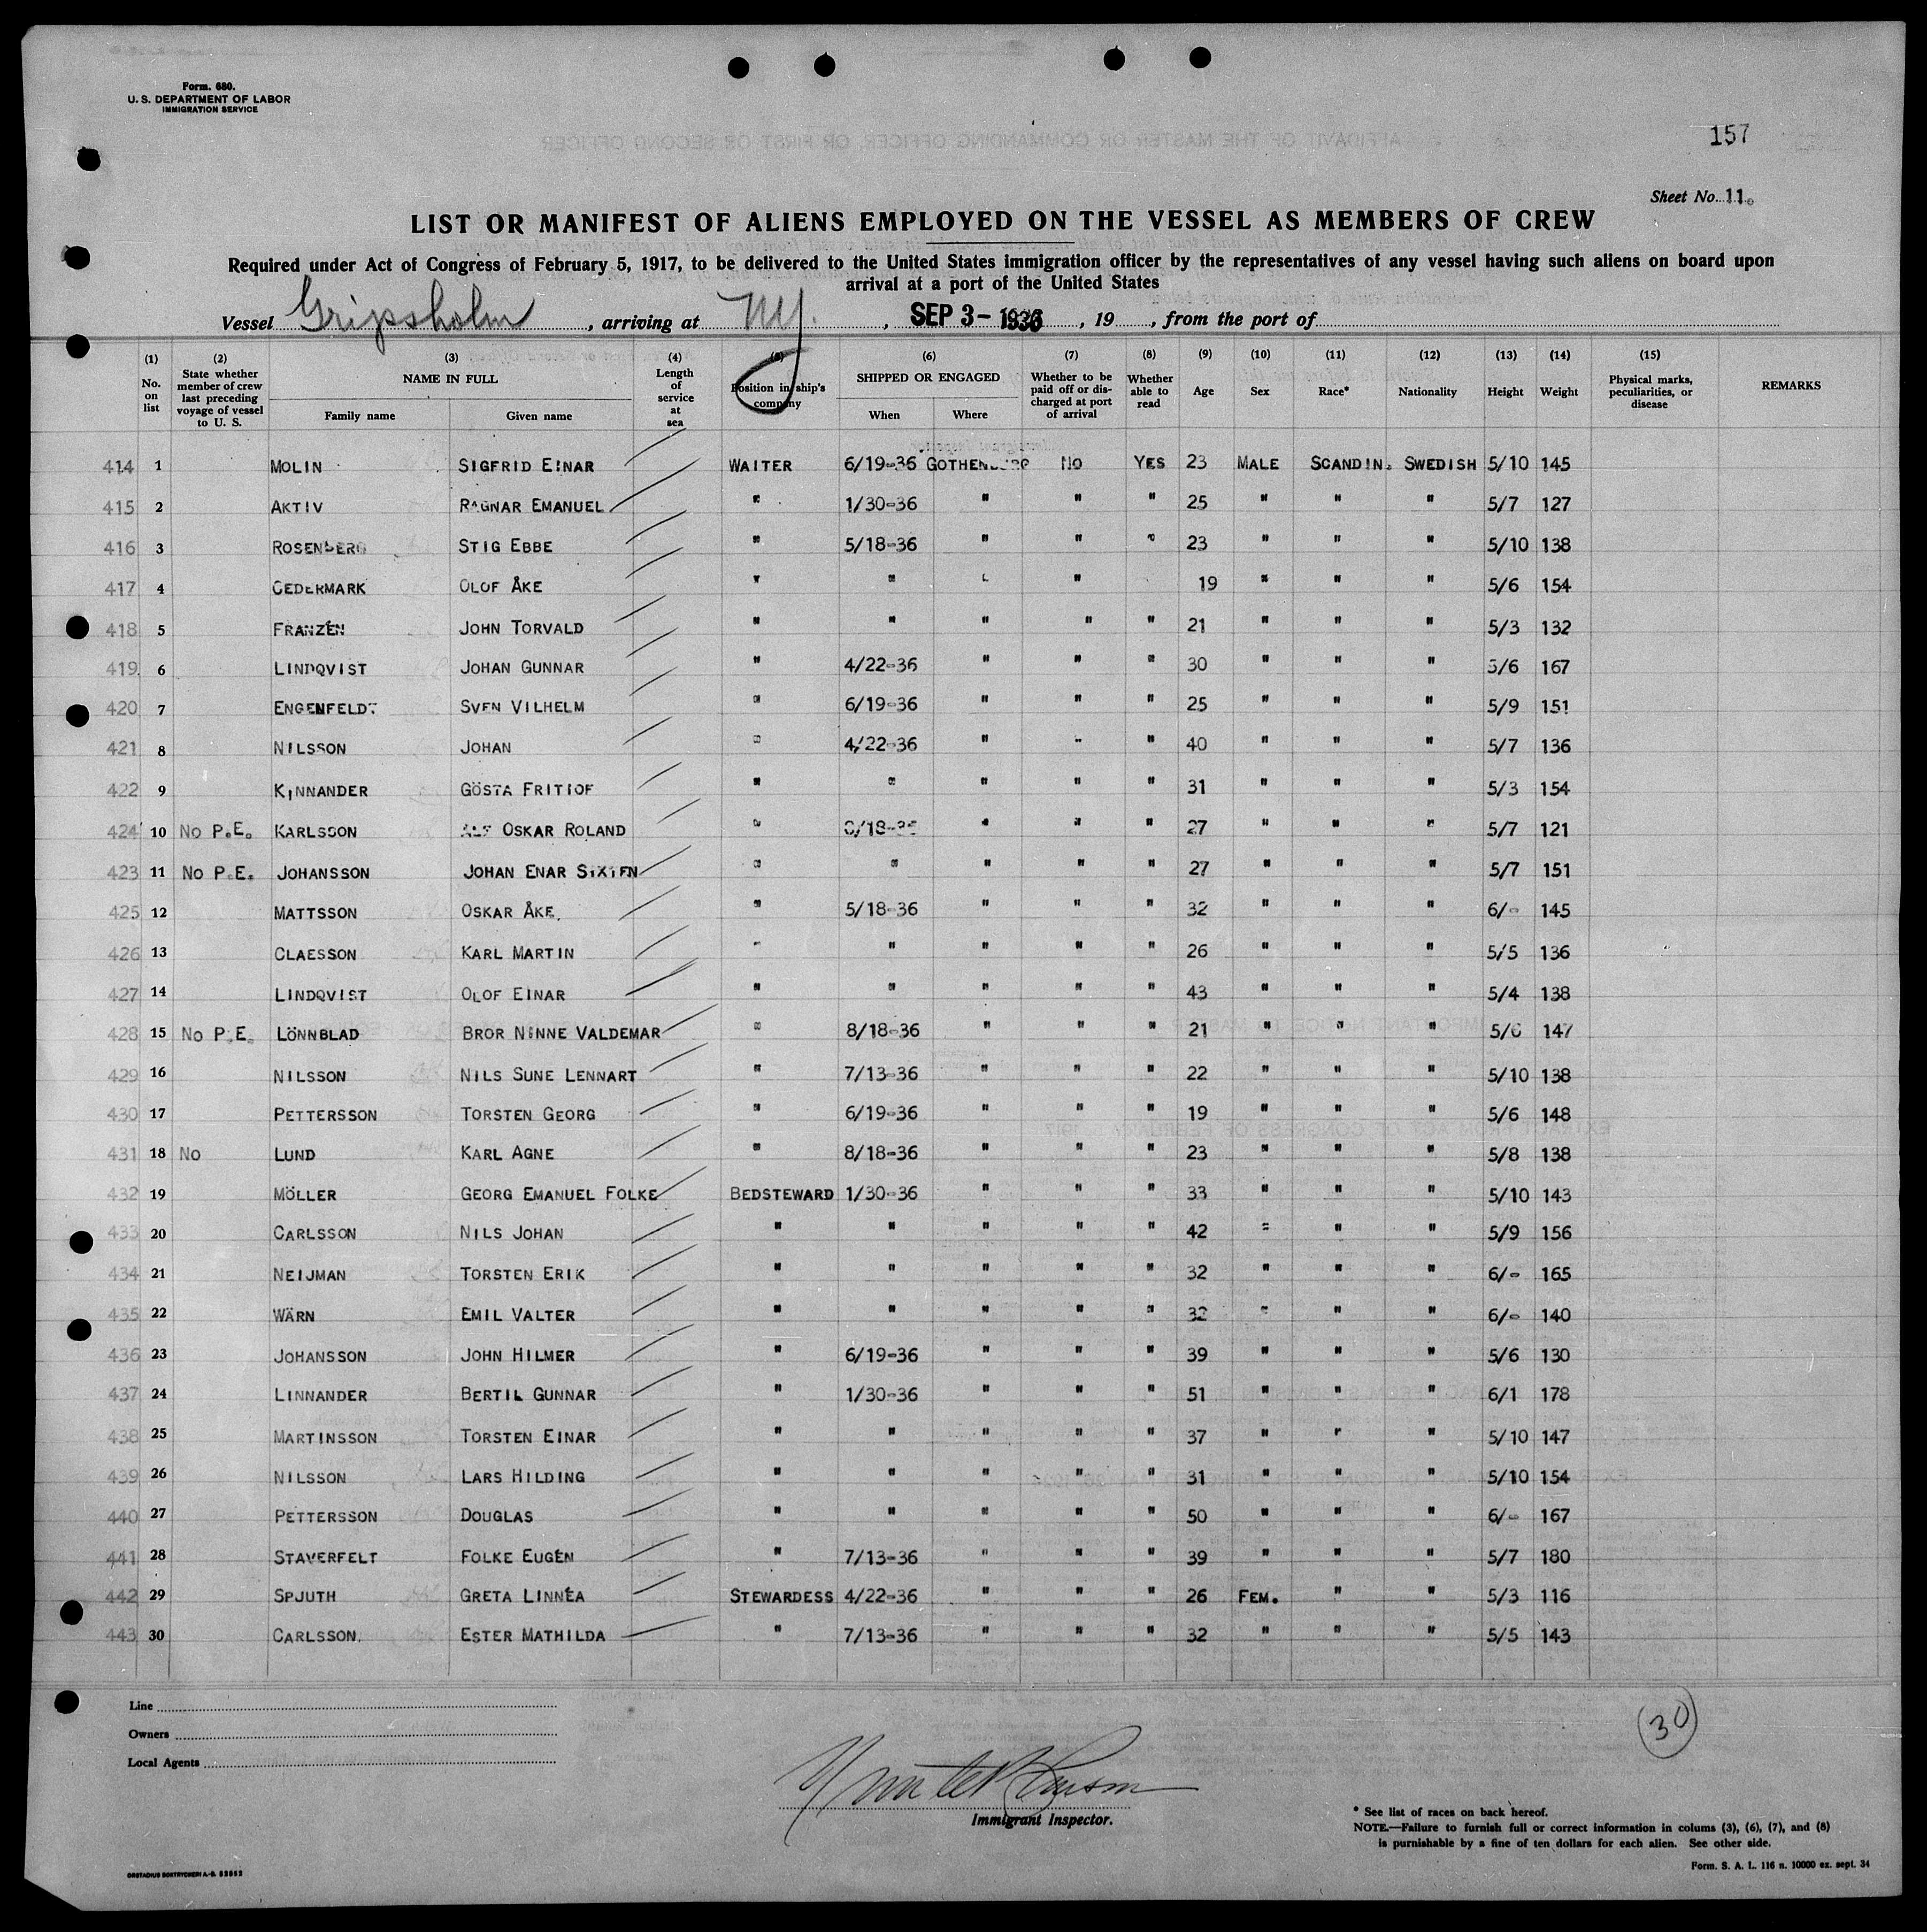 Form. 680.
U. S. DEPARTMENT OF LABOR
IMMIGRATION SERVICE
157
Sheet No. 11.
LIST OR MANIFEST OF ALIENS EMPLOYED ON THE VESSEL AS MEMBERS OF CREW
Required under Act of Congress of February 5, 1917, to be delivered to the United States immigration officer by the representatives of any vessel having such aliens on board upon
arrival at a port of the United States
Vessel Gripsholm, arriving at NY., SEP 3 - 1936, 19, from the port of
(1) No. on list (2) State whether member of crew last preceding voyage of vessel to U. S. (3) NAME IN FULL Family name Given name (4) Length of service at sea (5) Position in ship's company (6) SHIPPED OR ENGAGED When Where (7) Whether to be paid off or discharged at port of arrival (8) Whether able to read (9) Age (10) Sex (11) Race* (12) Nationality (13) Height (14) Weight (15) Physical marks, peculiarities, or disease REMARKS
414 1 MOLIN SIGFRID EINAR WAITER 6/19-36 GOTHENBURG NO YES 23 MALE SCANDIN. SWEDISH 5/10 145
415 2 AKTIV RAGNAR EMANUEL " 1/30-36 " " " 25 " " " 5/7 127
416 3 ROSENBERG STIG EBBE " 5/18-36 " " " 23 " " " 5/10 138
417 4 CEDERMARK OLOF ÅKE " " " " 19 " " " 5/6 154
418 5 FRANZÉN JOHN TORVALD " " " " " 21 " " " 5/3 132
419 6 LINDQVIST JOHAN GUNNAR " 4/22-36 " " " 30 " " " 5/6 167
420 7 ENGENFELDT SVEN VILHELM " 6/19-36 " " " 25 " " " 5/9 151
421 8 NILSSON JOHAN " 4/22-36 " " " 40 " " " 5/7 136
422 9 KINNANDER GÖSTA FRITIOF " " " " " 31 " " " 5/3 154
424 10 No P.E. KARLSSON ALF OSKAR ROLAND " " " " 27 " " " 5/7 121
423 11 No P.E. JOHANSSON JOHAN ENAR SIXTEN " " " " " 27 " " " 5/7 151
425 12 MATTSSON OSKAR ÅKE " 5/18-36 " " " 32 " " " 6/- 145
426 13 CLAESSON KARL MARTIN " " " " " 26 " " " 5/5 136
427 14 LINDQVIST OLOF EINAR " " " " " 43 " " " 5/4 138
428 15 No P.E. LÖNNBLAD BROR NINNE VALDEMAR " 8/18-36 " " " 21 " " " 5/6 147
429 16 NILSSON NILS SUNE LENNART " 7/13-36 " " " 22 " " " 5/10 138
430 17 PETTERSSON TORSTEN GEORG " 6/19-36 " " " 19 " " " 5/6 148
431 18 No LUND KARL AGNE " 8/18-36 " " " 23 " " " 5/8 138
432 19 MÖLLER GEORG EMANUEL FOLKE BEDSTEWARD 1/30-36 " " " 33 " " " 5/10 143
433 20 CARLSSON NILS JOHAN " " " " " 42 " " " 5/9 156
434 21 NEIJMAN TORSTEN ERIK " " " " " 32 " " " 6/- 165
435 22 WÄRN EMIL VALTER " " " " " 32 " " " 6/- 140
436 23 JOHANSSON JOHN HILMER " 6/19-36 " " " 39 " " " 5/6 130
437 24 LINNANDER BERTIL GUNNAR " 1/30-36 " " " 51 " " " 6/1 178
438 25 MARTINSSON TORSTEN EINAR " " " " " 37 " " " 5/10 147
439 26 NILSSON LARS HILDING " " " " " 31 " " " 5/10 154
440 27 PETTERSSON DOUGLAS " " " " " 50 " " " 6/- 167
441 28 STAVERFELT FOLKE EUGÉN " 7/13-36 " " " 39 " " " 5/7 180
442 29 SPJUTH GRETA LINNÉA STEWARDESS 4/22-36 " " " 26 FEM. " " 5/3 116
443 30 CARLSSON ESTER MATHILDA " 7/13-36 " " " 32 " " " 5/5 143
Line
Owners
Local Agents
30
Immigrant Inspector.
* See list of races on back hereof.
NOTE.—Failure to furnish full or correct information in colums (3), (6), (7), and (8)
is purnishable by a fine of ten dollars for each alien. See other side.
Form. S. A. L. 116 n. 10000 ex. sept. 34